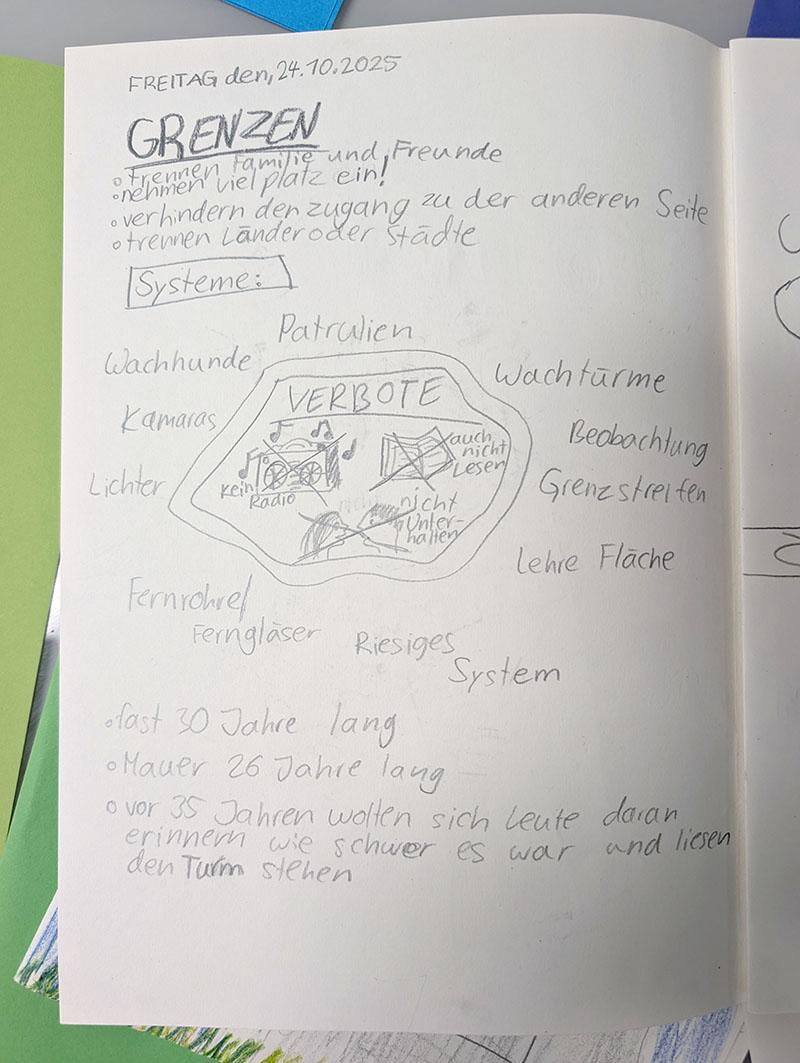 FREITAG den, 24.10.2025
GRENZEN
• trennen Familie und Freunde
• nehmen viel platz ein!
• verhindern den zugang zu der anderen Seite
• trennen Länder oder Städte
Systeme:
Patrulien
Wachhunde
Wachtürme
VERBOTE
Kamaras
Beobachtung
auch
nicht
Lesen
Lichter
kein
Radio
Grenzstreifen
nicht
Unter-
halten
Lehre Fläche
Fernrohre/
Ferngläser
Riesiges
System
• fast 30 Jahre lang
• Mauer 26 Jahre lang
• vor 35 Jahren wolten sich Leute daran
erinnern wie schwer es war und liesen
den Turm stehen